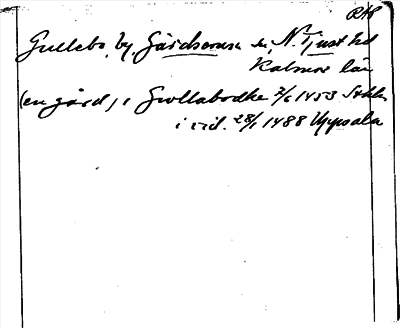 RAP
Gullebo, by Gärdserums sn, N. Tjust hd
Kalmar län
(en gård) i Gwllabodhe 2/6 1453 Sthlm
i vid. 28/1 1488 Uppsala